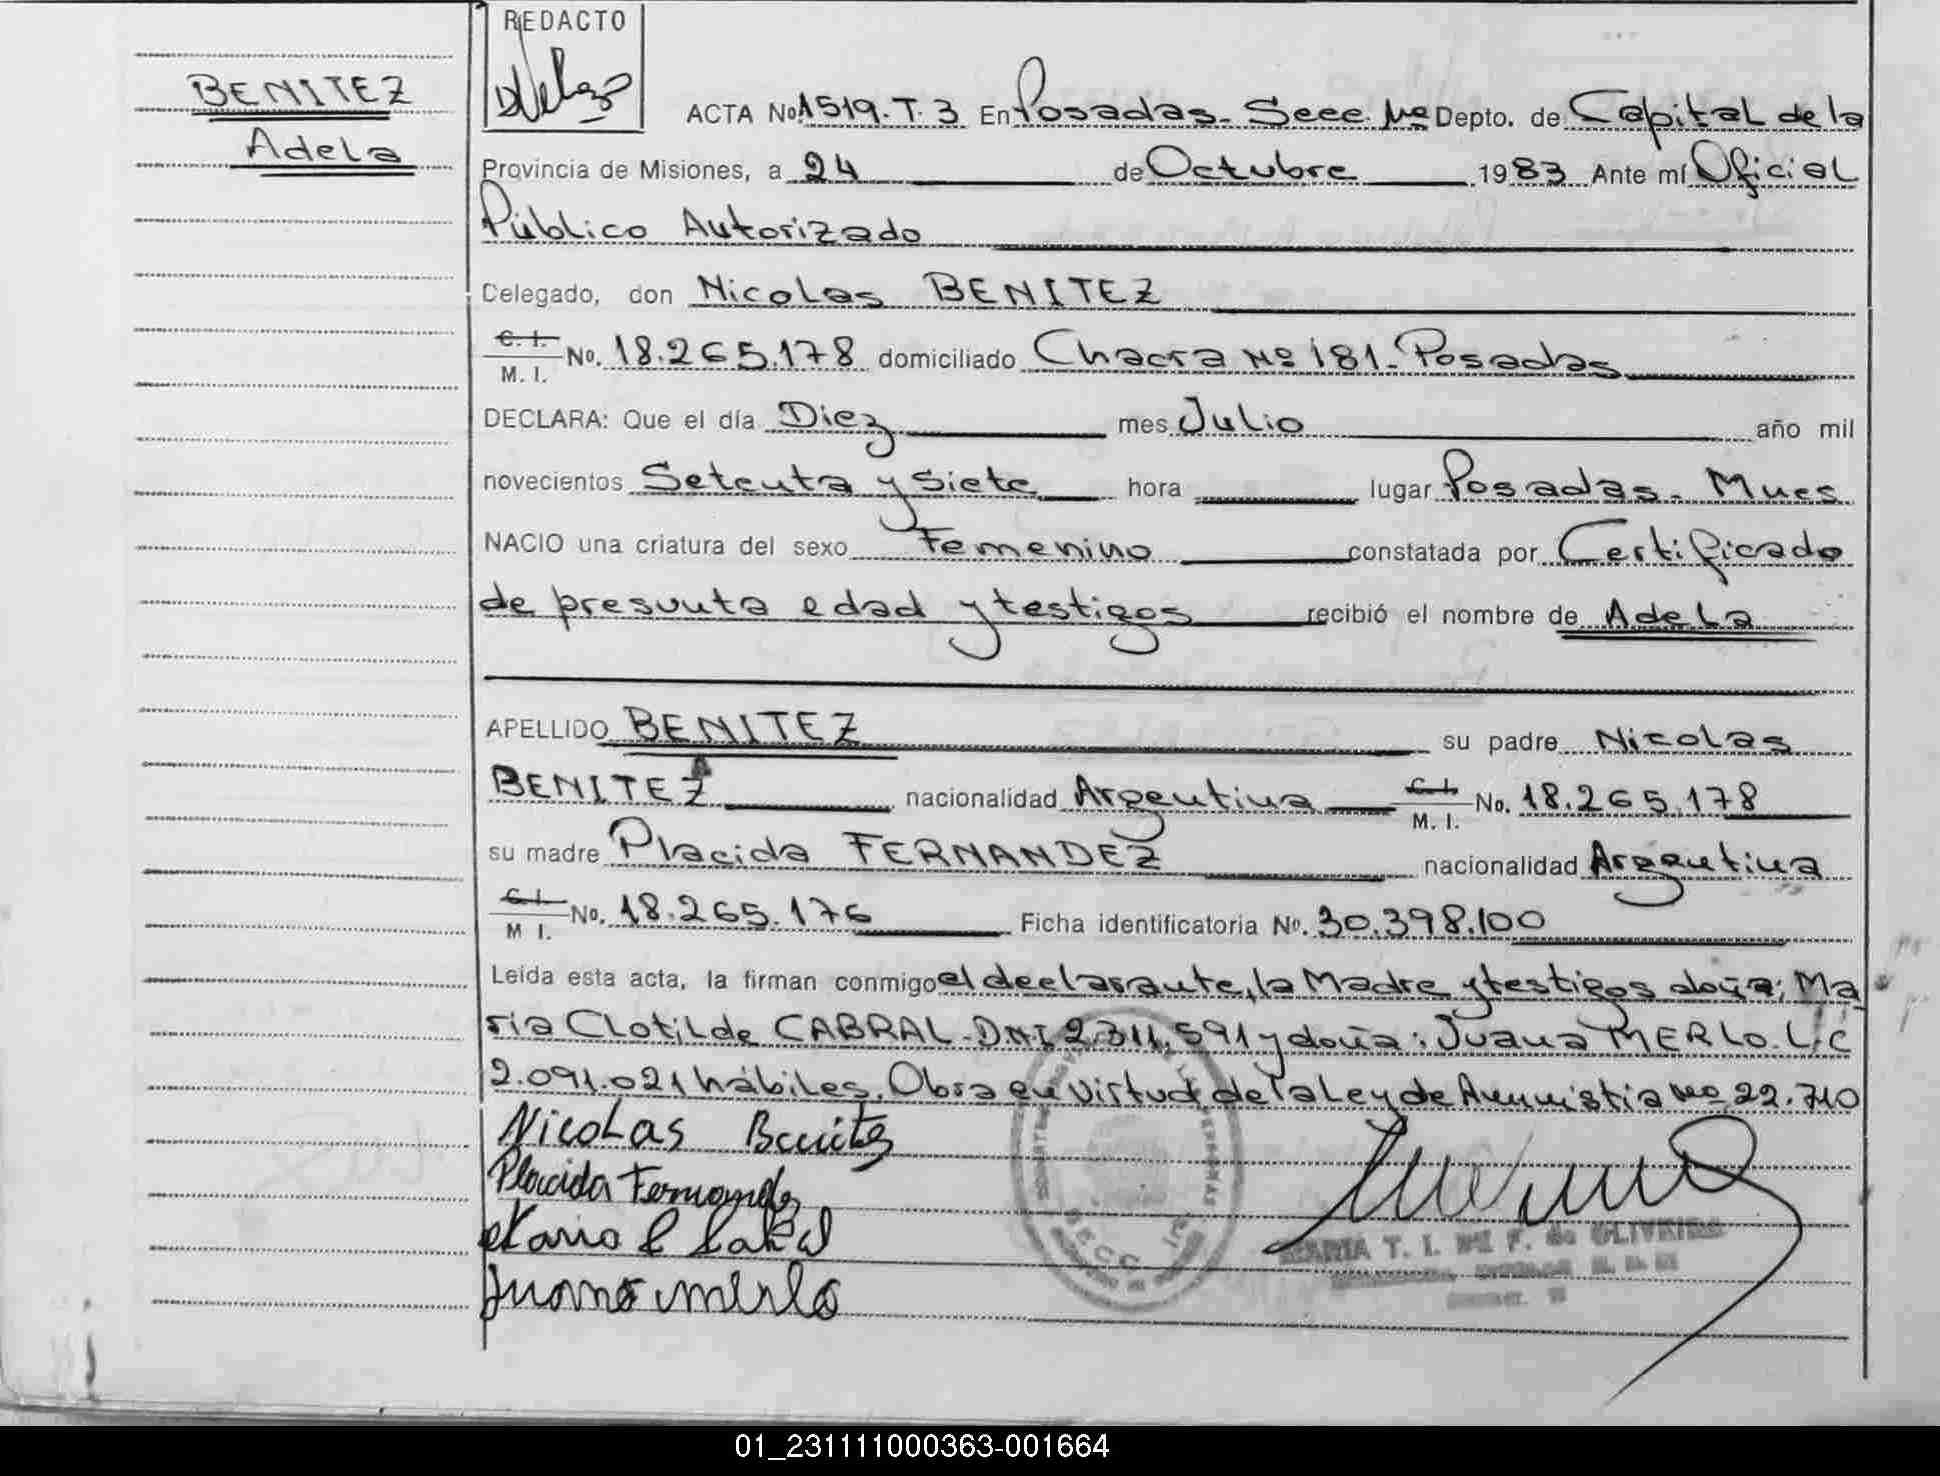 BENITEZ
Adela
REDACTO
ACTA No. 1519. T. 3 En Posadas- Secc. Depto. de Capital de la
Provincia de Misiones, a 24 de Octubre 1983 Ante mí Oficial
Público Autorizado
Delegado, don Nicolas BENITEZ
C. I. / M. I. No. 18.265.178 domiciliado Chacra Nº 181- Posadas
DECLARA: Que el día Diez mes Julio año mil
novecientos Setenta y siete hora lugar Posadas- Mnes
NACIO una criatura del sexo Femenino constatada por Certificado
de presunta edad y testigos recibió el nombre de Adela
APELLIDO BENITEZ su padre Nicolas
BENITEZ nacionalidad Argentina C. I. / M. I. No. 18.265.178
su madre Placida FERNANDEZ nacionalidad Argentina
C. I. / M I. No. 18.265.176 Ficha identificatoria No. 30.398.100
Leída esta acta, la firman conmigo el declarante, la Madre y testigos doña; Ma
ria Clotilde CABRAL- DNI 2.311.591 y doña: Juana MERLO. L.C
2.091.021 hábiles. Obra en virtud de la Ley de Amnistia Nº 22.710
Nicolas Benitez
Placida Fernandez
Maria C Cabral
Juana merlo
MARIA T. I. DE F. de OLIVEIRA
01_231111000363-001664